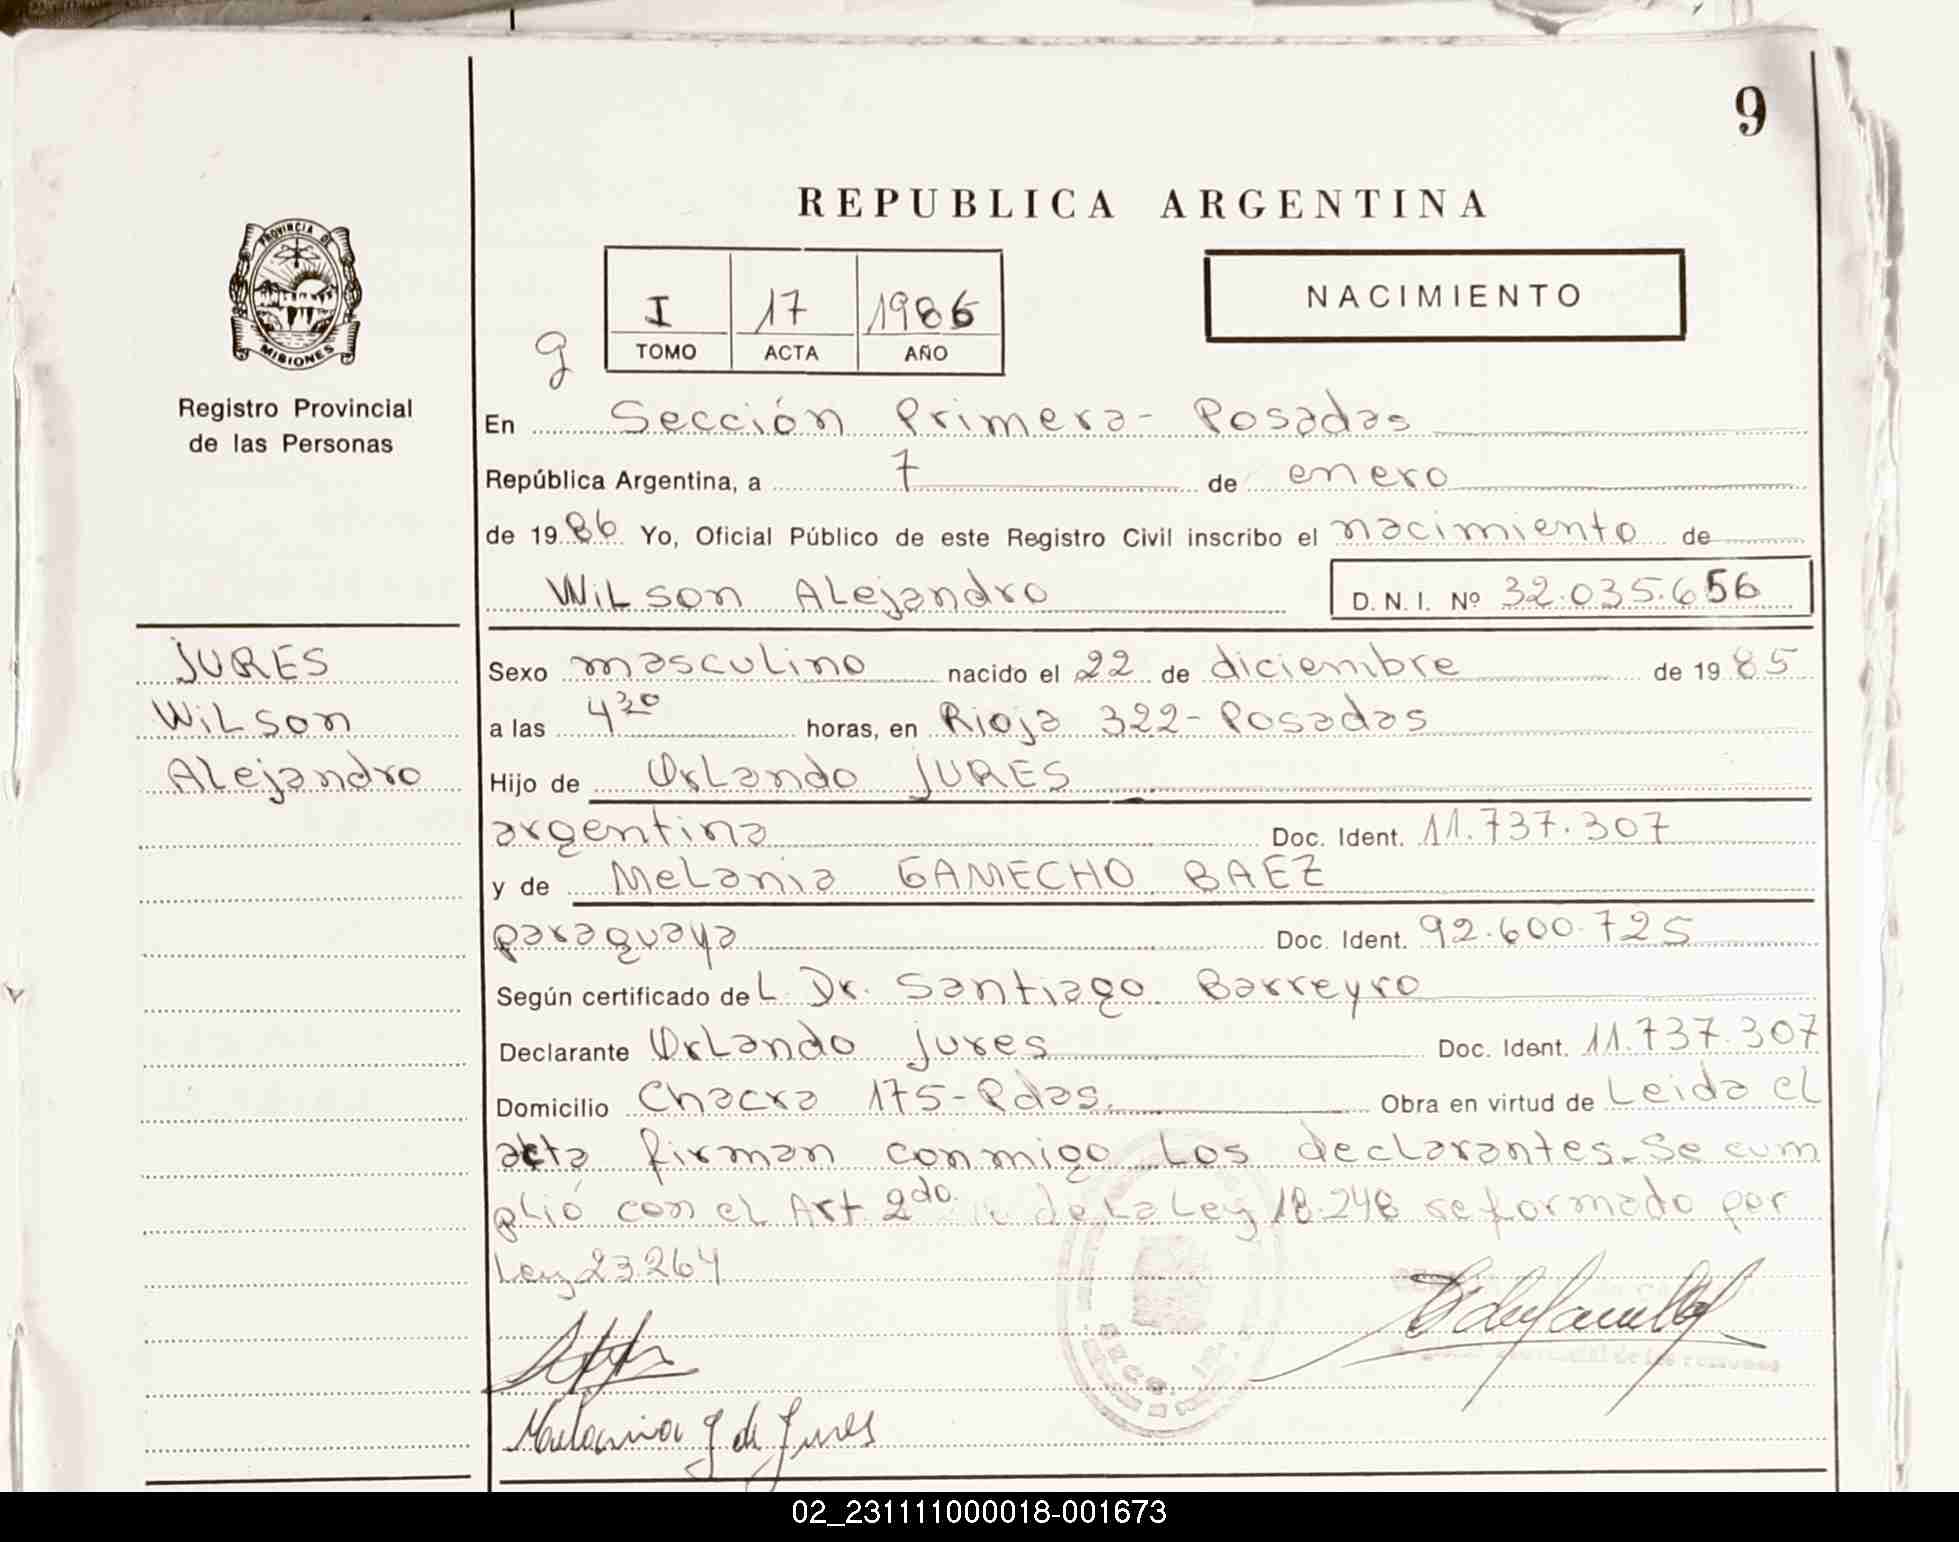 9
REPUBLICA ARGENTINA
PROVINCIA DE
MISIONES
Registro Provincial
de las Personas
I 17 1986
TOMO ACTA AÑO
NACIMIENTO
9
En Sección Primera - Posadas
República Argentina, a 7 de enero
de 1986 Yo, Oficial Público de este Registro Civil inscribo el nacimiento de
Wilson Alejandro D.N.I. Nº 32.035.656
JURES
Wilson
Alejandro
Sexo masculino nacido el 22 de diciembre de 1985
a las 4 30 horas, en Rioja 322 - Posadas
Hijo de Orlando JURES
argentina Doc. Ident. 11.737.307
y de Melania GAMECHO BAEZ
paraguaya Doc. Ident. 92.600.725
Según certificado del Dr. Santiago Barreyro
Declarante Orlando Jures Doc. Ident. 11.737.307
Domicilio Chacra 175 - Pdas. Obra en virtud de Leida el
acta firman conmigo los declarantes. Se cum
plió con el Art. 2do. de la Ley 18.248 reformado por
Ley 23.264
Melania G de Jures
02_231111000018-001673